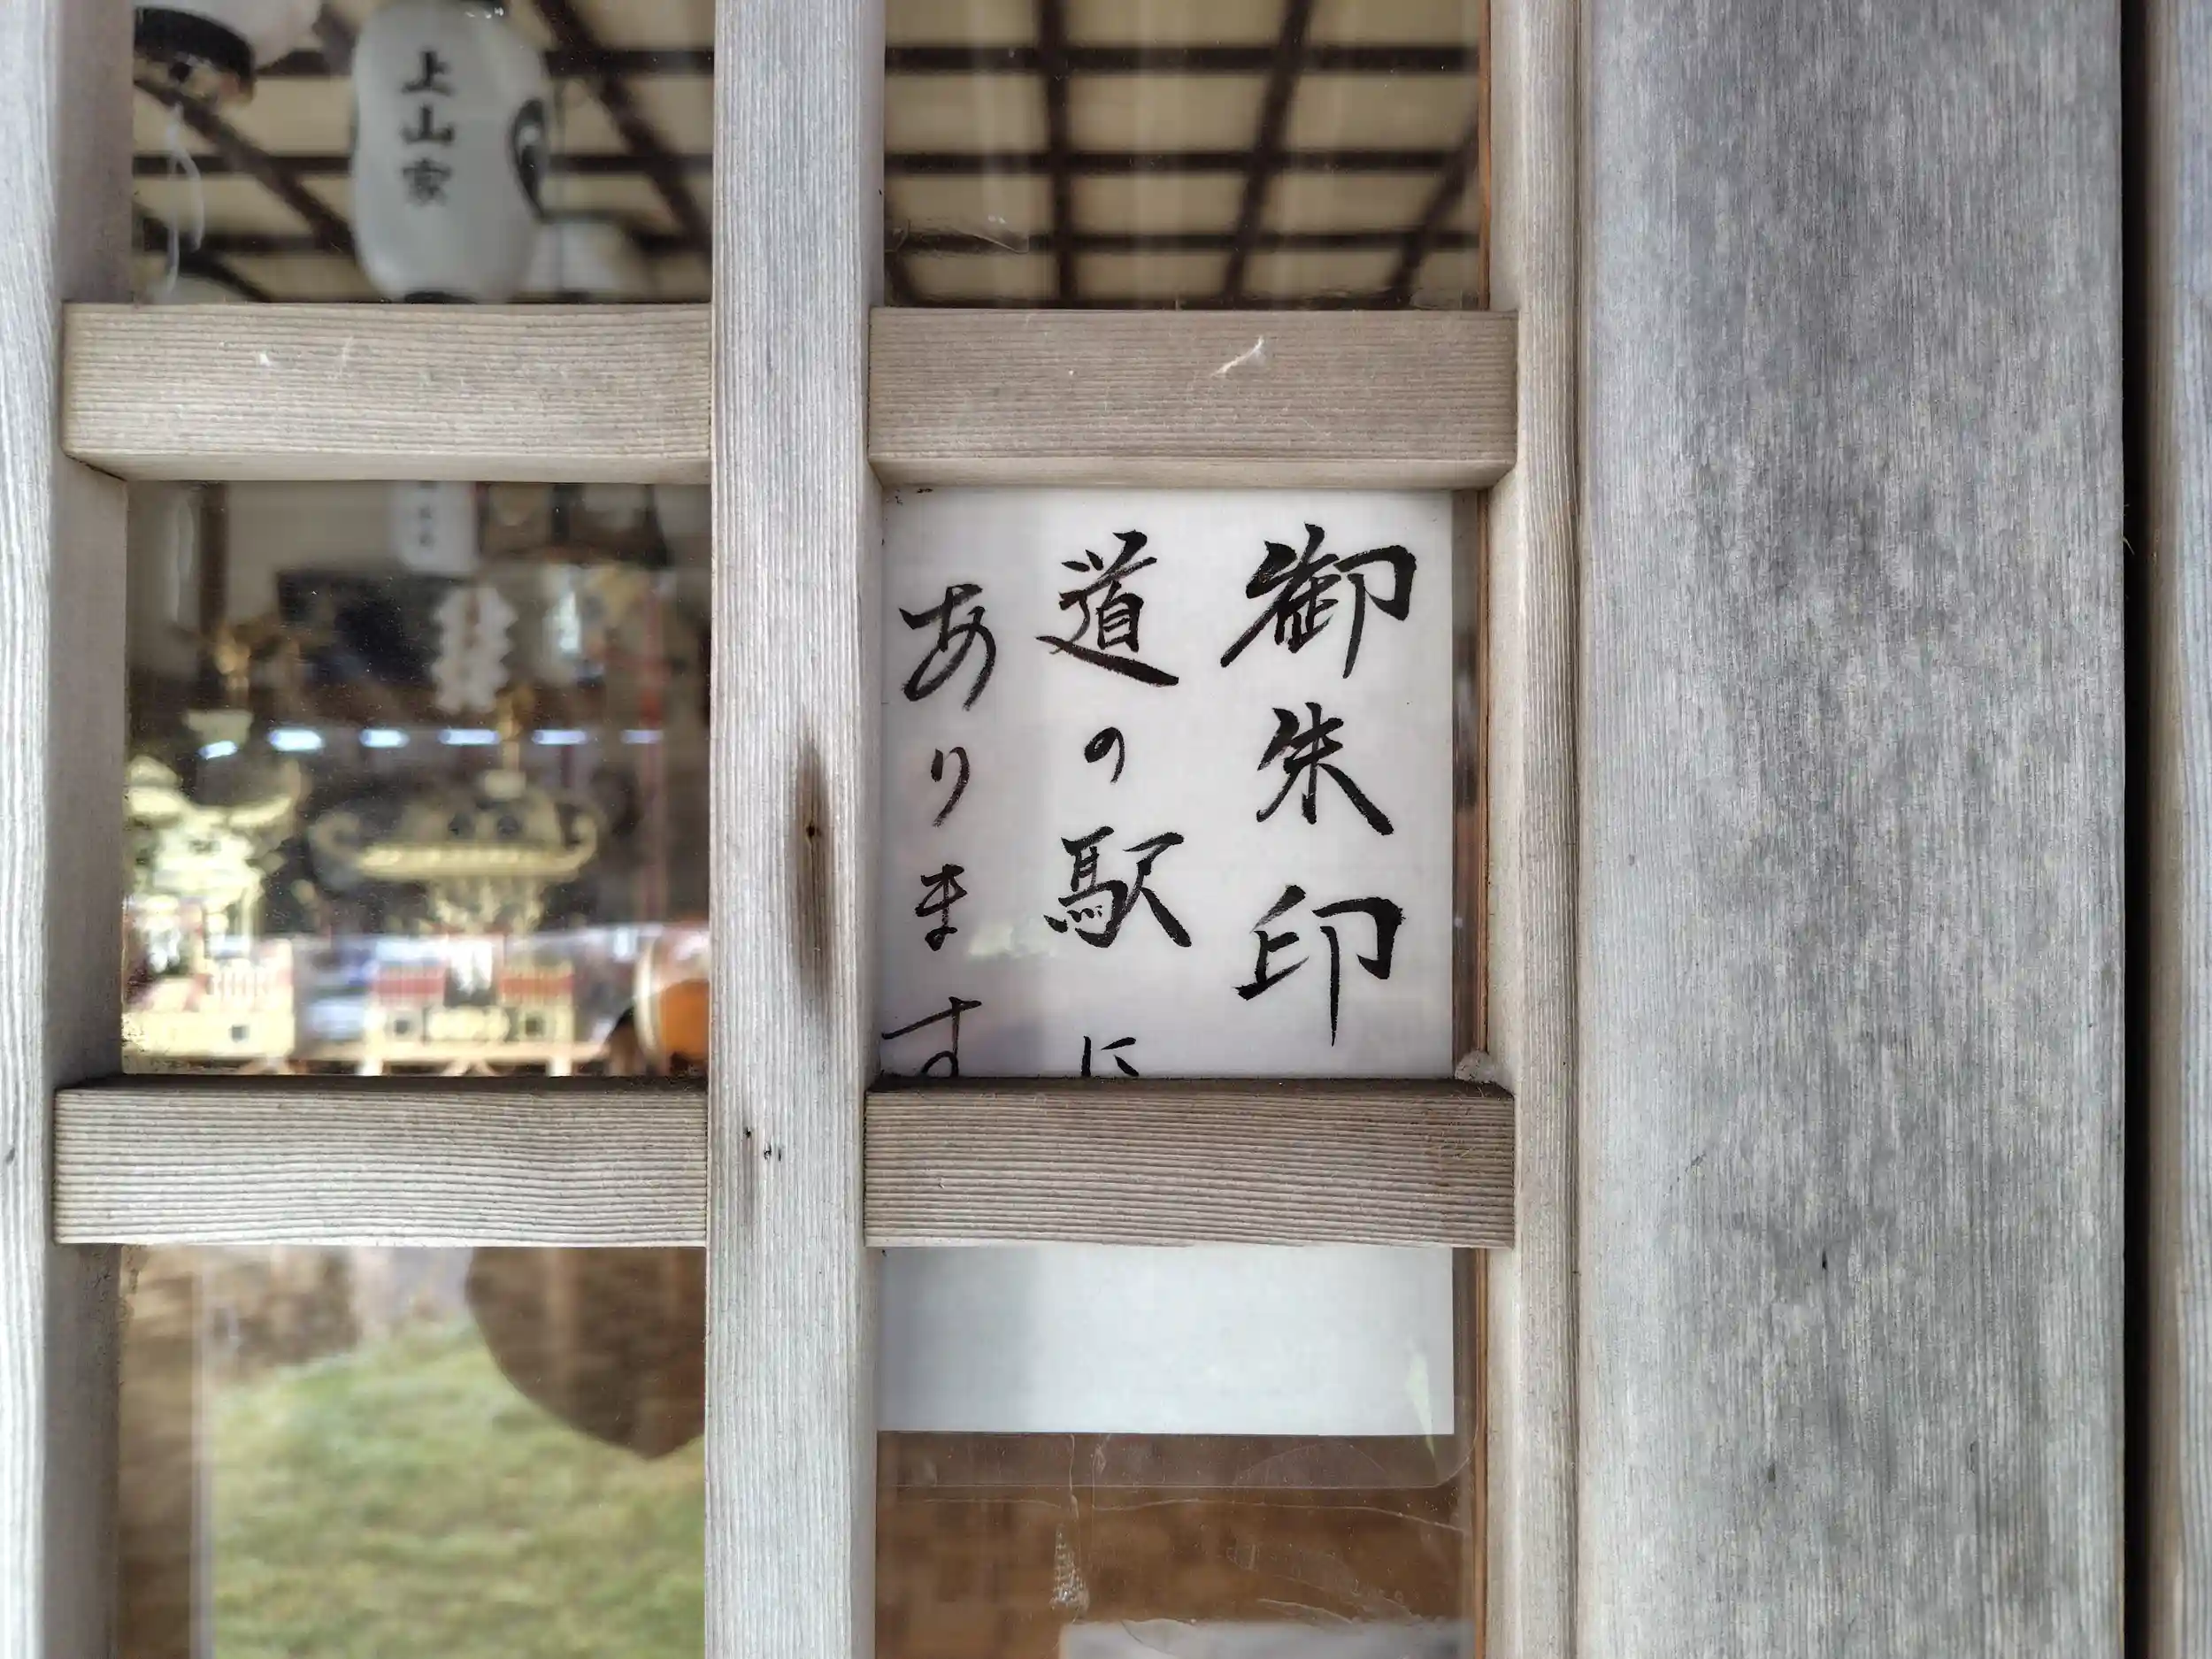 上山家
御朱印
道の駅に
あります